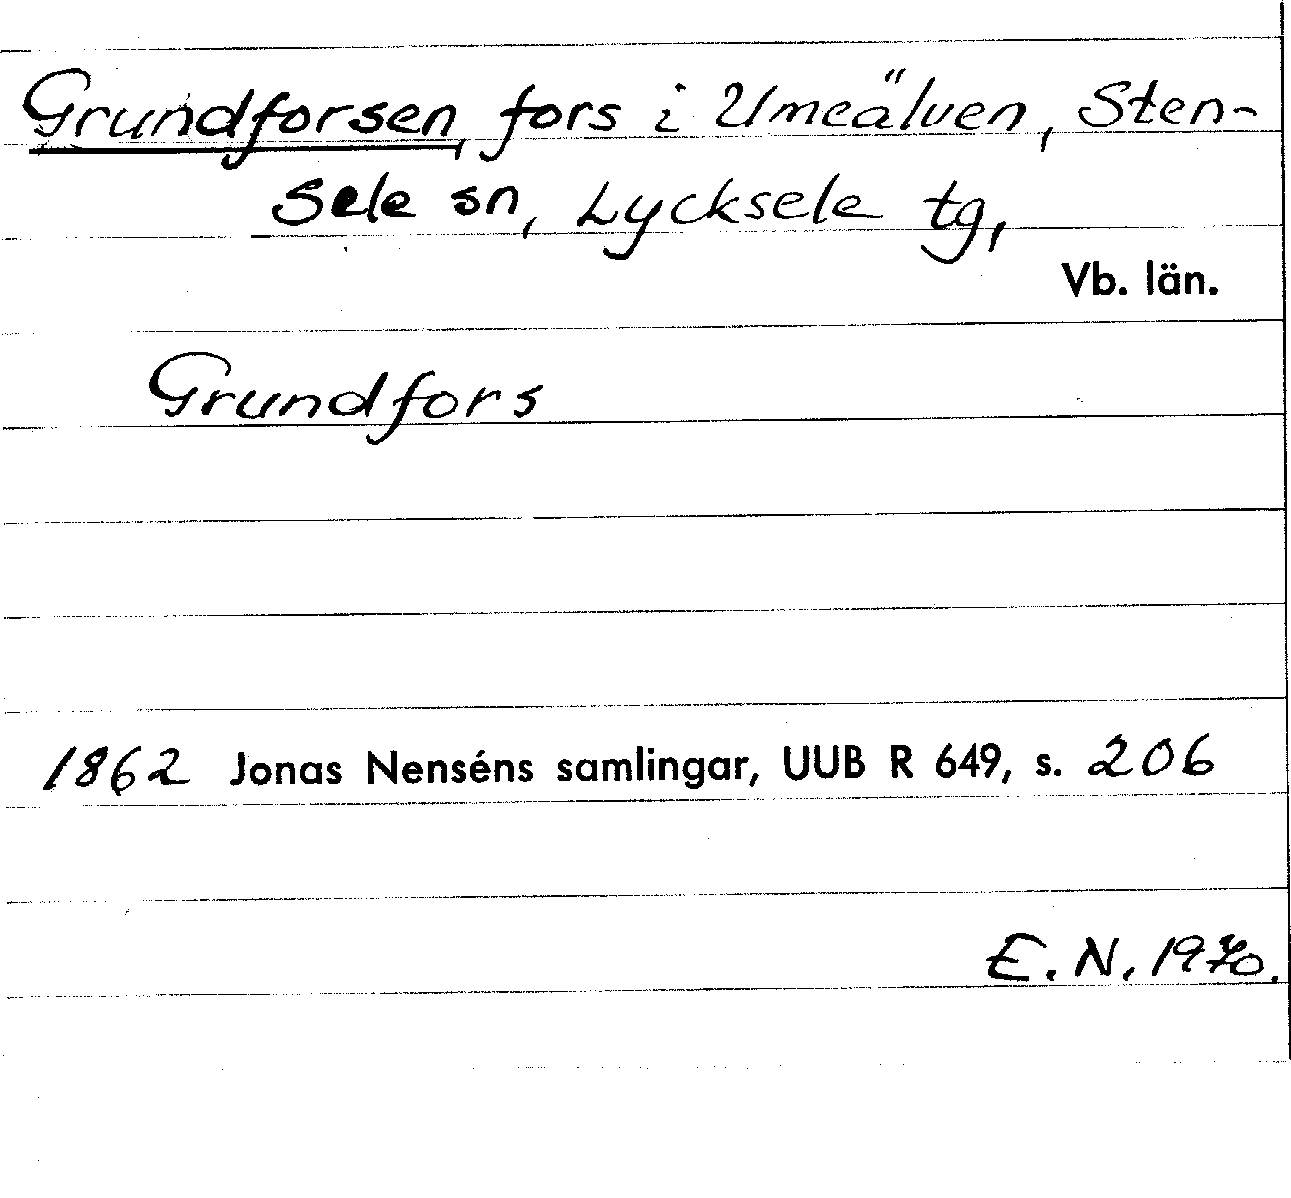 Grundforsen, fors i Umeälven, Sten-
sele sn, Lycksele tg,
Vb. län.
Grundfors
1862 Jonas Nenséns samlingar, UUB R 649, s. 206
E. N. 1970.